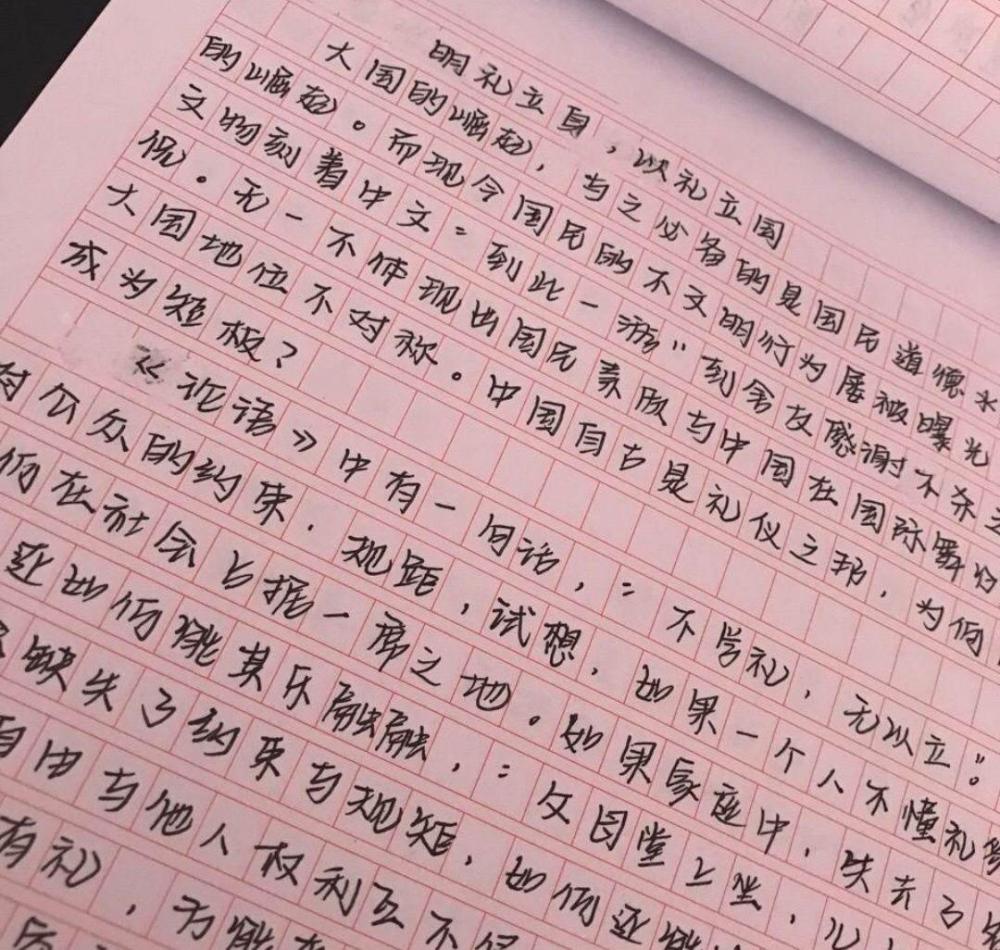 明礼立身，以礼立国
大国的崛起，与之必备的是国民道德水
的崛起。而现今国民的不文明行为屡被曝光
文物刻着中文“到此一游”到舍友感谢不杀之
况。无一不体现出国民素质与中国在国际舞台
大国地位不对称。中国自古是礼仪之邦，为何
成为短板？
《论语》中有一句话，“不学礼，无以立”。
对公众的约束．规距，试想，如果一个人不懂礼
何在社会占据一席之地。如果家庭中，失去了
还如何能其乐融融，“父母堂上坐，儿
缺失了约束与规矩，如何还能
自由与他人权利互不
有礼，方能在